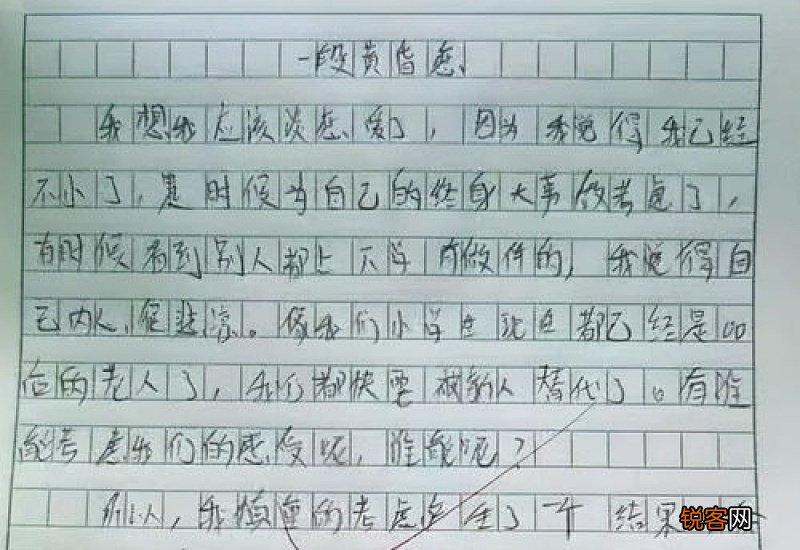 一段黄昏恋
我想我应该谈恋爱了，因为我觉得我已经
不小了，是时候为自己的终身大事做考虑了，
有时候看到别人都上下学有做伴的，我觉得自
己内心很悲凉。像我们小学生现在都已经是00
后的老人了，我们都快要被新人替代了。有谁
能考虑我们的感受呢，谁能呢？
所以，我慎重的考虑 了一下 结果
锐客网